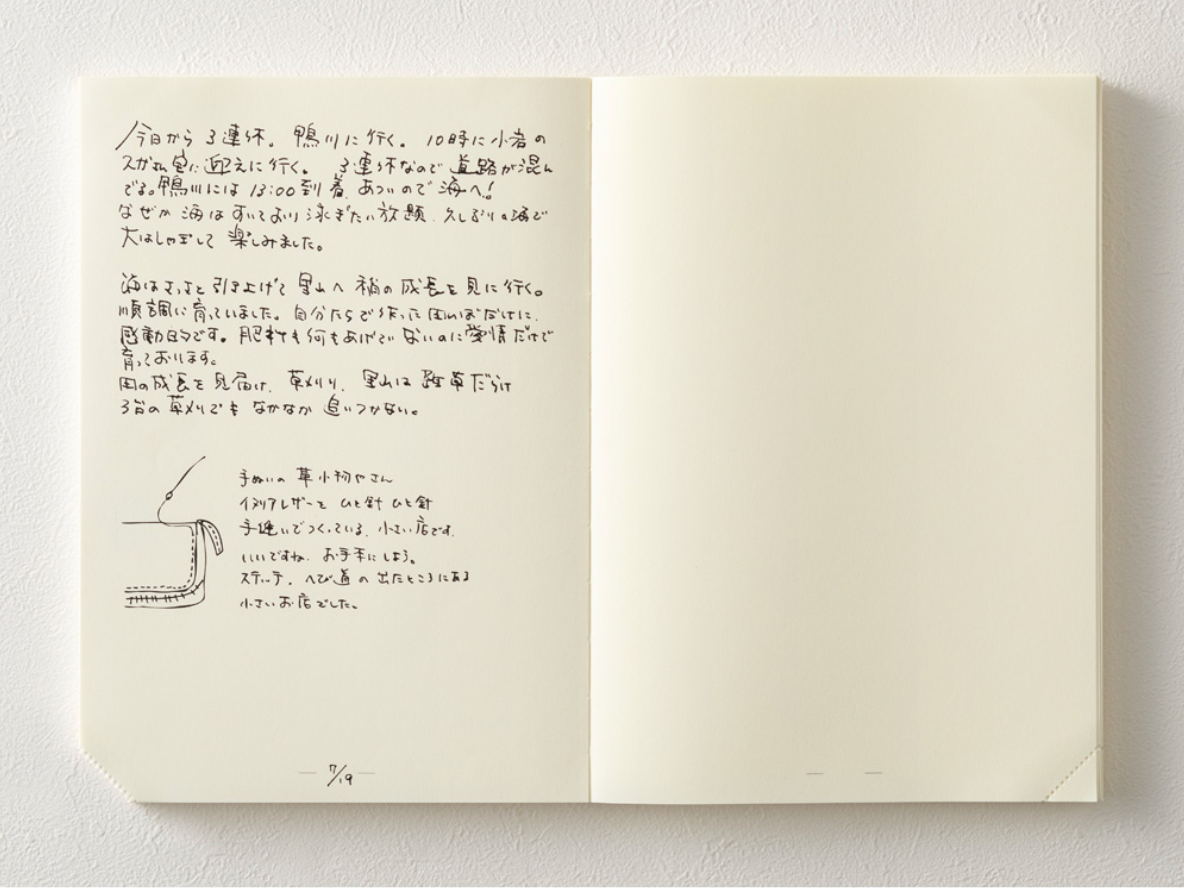 今日から 3連休。鴨川に行く。10時に小岩の
スガさん宅に迎えに行く。3連休なので道路が混ん
でる。鴨川には 13:00到着、あついので海へ!
なぜか 海はすいており 泳ぎたい放題、久しぶりの海で
大はしゃぎして 楽しみました。
海はさっさと引き上げて 里山へ 稲の成長を見に行く。
順調に育っていました。自分たちで作った田んぼだけに、
感動的です。肥料も何もあげていないのに愛情だけで
育っております。
田の成長を見届け、草刈り、里山は 雑草だらけ
3台の草刈りでも なかなか 追いつかない。
手ぬいの 革小物やさん
イタリアレザーを ひと針 ひと針
手縫いでつくっている、小さい店です。
いいですね、お手本にしよう。
ステッチ、へび道の 出たところにある
小さいお店でした。
7/19